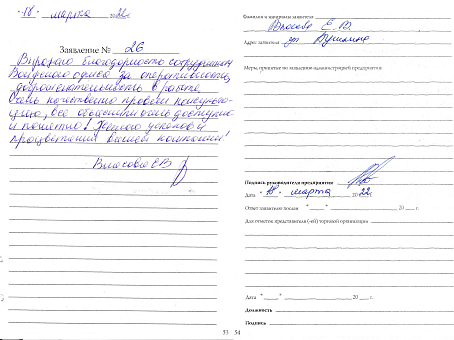 "18" марта 2022г.
Заявление № 26
Выражаю благодарность сотрудникам
офиса за оперативность,
доброжелательность в работе.
Очень качественно провели
все объяснили доступно
и понятно! Желаю успехов и
процветания вашей компании!
Власова ЕВ
Фамилия и инициалы заявителя
Власова Е. В.
Адрес заявителя ул Пушкина
Меры, принятые по заявлению администрацией предприятия
Подпись руководителя предприятия
Дата "18" марта 2022г.
Ответ заявителю послан " " 20 г.
Для отметок представителя (-ей) торговой организации
Дата " " 20 г.
Должность
Подпись
53 54